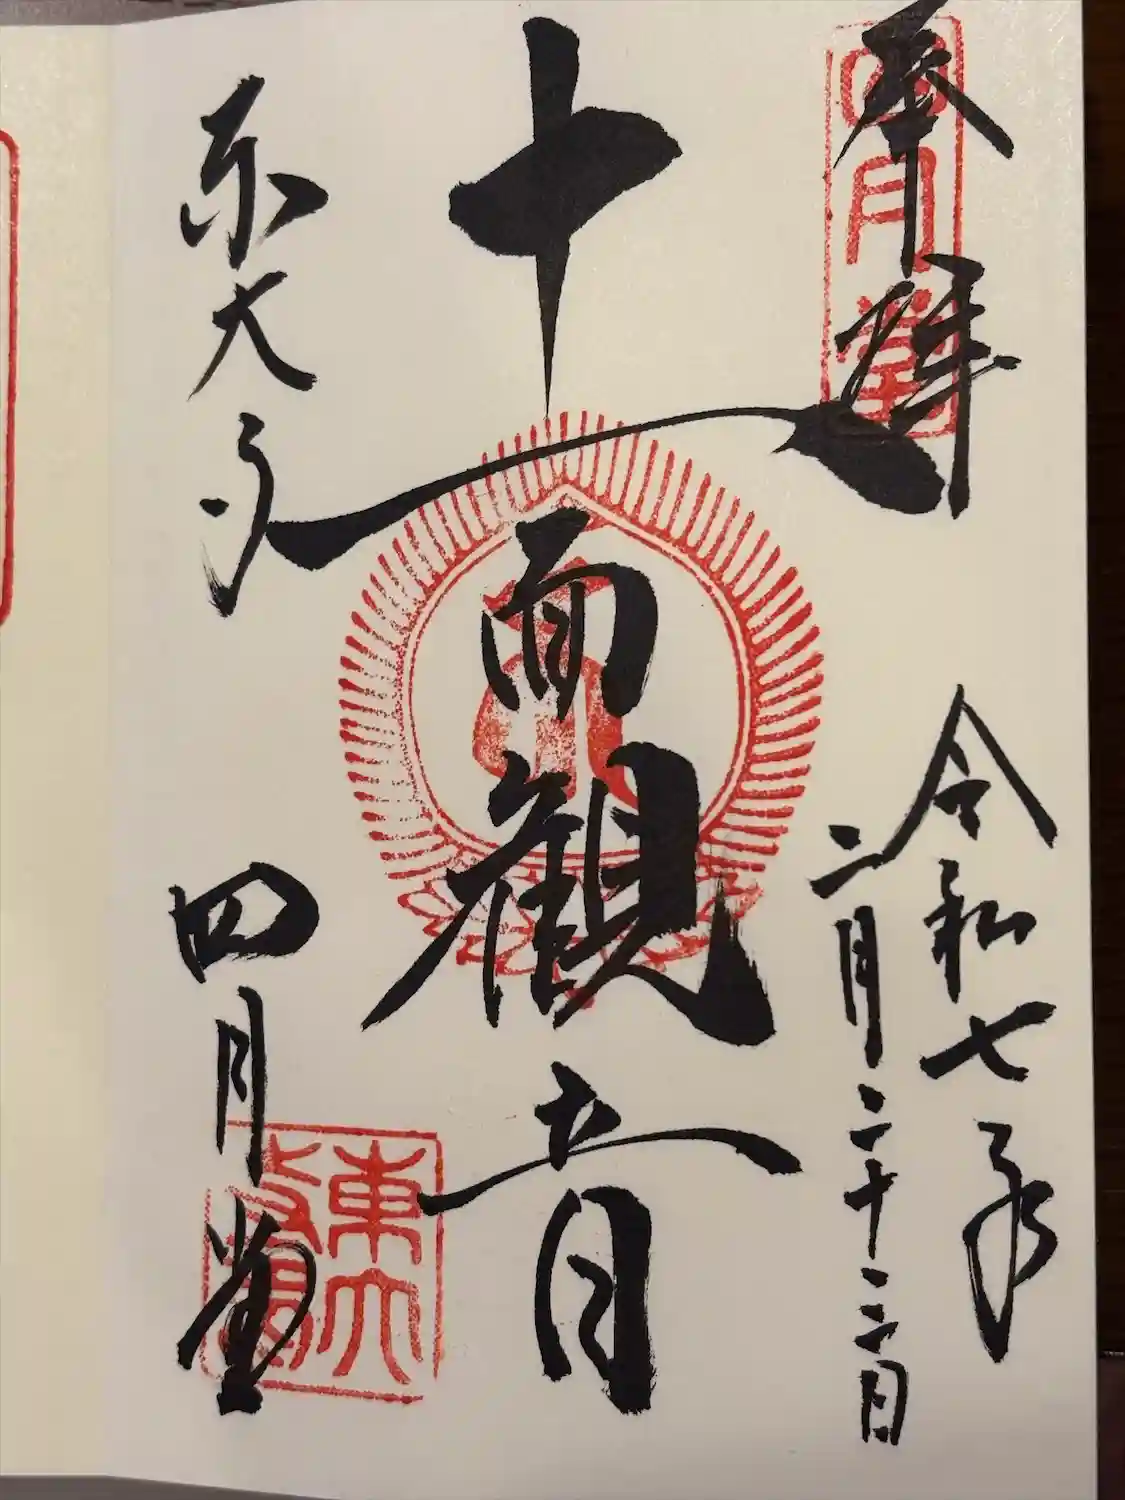 奉拝
四月堂
令和七年
二月二十二日
十一面観音
東大寺
四月堂
東大寺